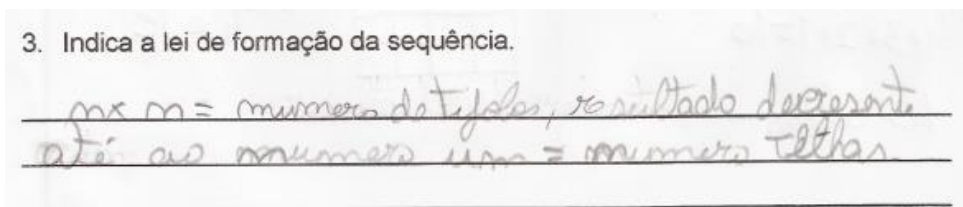 3. Indica a lei de formação da sequência.
n x n = numero de tijolos, resultado decresente
até ao numero um = numero telhas